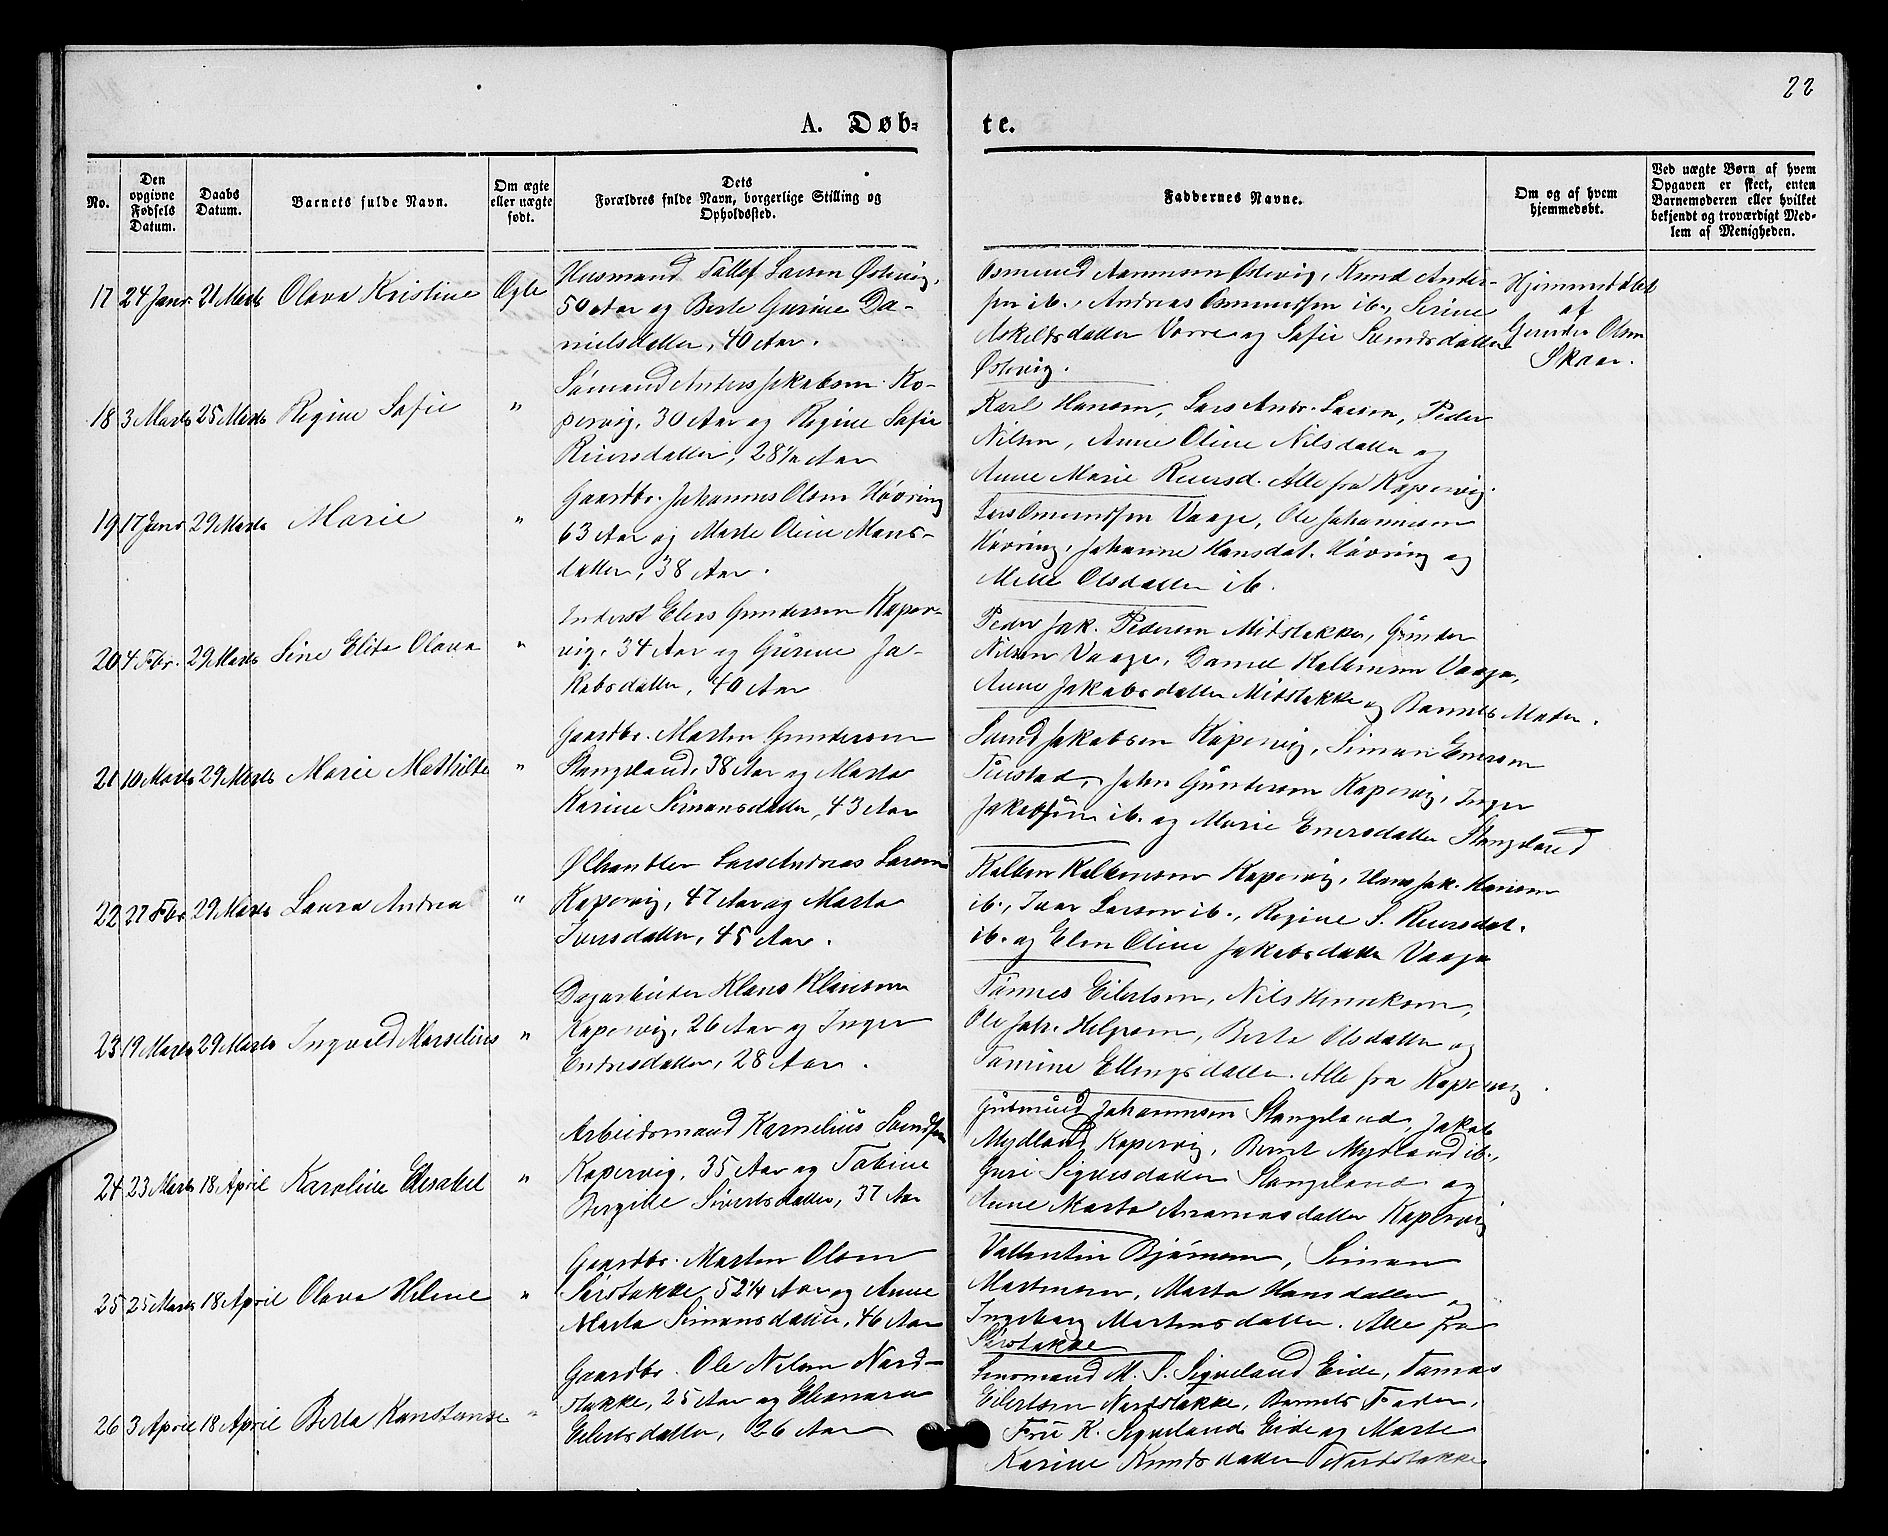 22
A. Døb-
te.
No.
Den opgivne Fødsels Datum.
Daabs Datum.
Barnets fulde Navn.
Om ægte eller uægte født.
Dets Forældres fulde Navn, borgerlige Stilling og Opholdssted.
Faddernes Navne.
Om og af hvem hjemmedøbt.
Ved uægte Børn af hvem Opgaven er skeet, enten Barnemoderen eller hvilket bekjendt og troværdigt Medlem af Menigheden.
17 24 Janr. 21 Marts Olava Kristine Ægte
Husmand Tollef Larsen Østevig,
50 Aar og Berte Gurine Da-
nielsdatter, 40 Aar.
Osmund Aanensen Østevig, Knud Ander-
sen ib., Andreas Osmundsen ib., Serine
Askeldsdatter Vorre og Sofie Sundsdatter
Østevig.
Hjemmedøbt
af
Gunder Olsen
Skaar.
18 3 Marts 25 Marts Regine Sofie "
Sømand Anders Jakobsen Ko-
pervig, 30 Aar og Regine Sofie
Reiersdatter, 28½ Aar
Karl Hansen, Lars Andr. Larsen, Peder
Nilsen, Anne Oline Nilsdatter og
Anne Marie Reiersd. Alle fra Kopervig.
19 17 Janr 29 Marts Marie "
Gaardbr. Johannes Olsen Høvring
63 Aar og Marte Oline Mons-
datter, 38 Aar.
Lars Omundsen Vaage, Ole Johannesen
Høvring, Johanne Hansdat. Høvring og
Mette Olsdatter ib.
20 4 Fbr. 29 Marts Sine Elise Olava "
Inderst Elias Gundersen Koper-
vig, 34 Aar og Gurine Ja-
kobsdatter, 40 Aar
Peder Jak. Pedersen Midstokke, Gunder
Nilsen Vaage, Daniel Kolbensen Vaage,
Anne Jakobsdatter Midstokke og Barnets Moder.
21 10 Marts 29 Marts Marie Mathilde "
Gaardbr. Morten Gundersen
Stangeland, 38 Aar og Marta
Karine Simonsdatter, 43 Aar
Svend Jakobsen Kopervig, Simon Enersen
John Gundersen Kopervig, Inger
ib. og Marie Enersdatter Stangeland
22 27 Fbr. 29 Marts Laura Andrea "
Ølhandler Lars Andreas Larsen
Kopervig, 47 Aar og Marta
Iversdatter, 45 Aar.
Kolben Kolbensen Kopervig, Hans Jak. Hansen
ib., Ivar Larsen ib., Regine S. Reiersdat.
ib. og Elen Oline Jakobsdatter Vaage
23 19 Marts 29 Marts Ingvald Marselius "
Dagarbeider Klaus Klausen
Kopervig, 26 Aar og Inger
Endresdatter, 28 Aar.
Tønnes Eilertsen, Nils Henriksen,
Ole Joh. Helgesen, Berta Olsdatter og
Tomine Ellingsdatter. Alle fra Kopervig.
24 23 Marts 18 April Karoline Elisabet "
Arbeidsmand Kornelius Svendsen
Kopervig, 35 Aar og Tobine
Bergitte Sivertsdatter, 37 Aar
Gudmund Johannesen Stangeland, Jakob
Mydland Kopervig, Bernt Mydland ib.,
Gure Sigvesdatter Stangeland og
Anne Marta Aramasdatter Kopervig
25 25 Marts 18 April Olava Helene "
Gaardbr. Morten Olsen
Sørstokke, 52¼ Aar og Anne
Marta Simonsdatter, 46 Aar
Vallentin Bjørnsen, Simon
Mortensen, Marta Hansdatter og
Ingeborg Mortensdatter. Alle fra
Sørstokke
26 3 April 18 April Berta Konstanse "
Gaardbr. Ole Nilsen Nord-
stokke, 25 Aar og Elenora
Eilertsdatter, 26 Aar
Lensmand M. S. Sigveland Eide, Tomas
Eilertsen Nordstokke, Barnets Fader,
Fru K. Sigveland Eide og Marte
Karine Knudsdatter Nordstokke